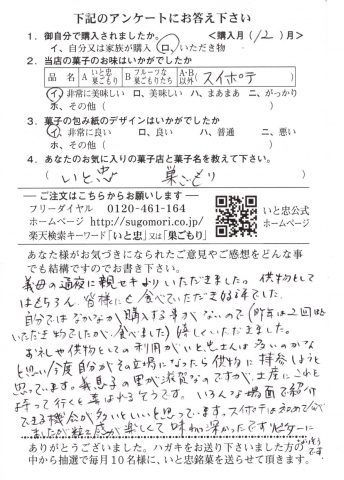 下記のアンケートにお答え下さい
1. 御自分で購入されましたか。 <購入月(12)月>
イ、自分又は家族が購入 ロ、いただき物
2. 当店の菓子のお味はいかがでしたか
品名 A いと忠巣ごもり B フルーツな巣ごもりたち A・B以外 スイポテ
イ、非常に美味しい ロ、美味しい ハ、まあまあ ニ、がっかり
ホ、その他( )
3. 菓子の包み紙のデザインはいかがでしたか
イ、非常に良い ロ、良い ハ、普通 ニ、悪い
ホ、その他( )
4. あなたのお気に入りの菓子店と菓子名を教えて下さい。
( いと忠 巣ごもり )
ご注文はこちらからお願いします
フリーダイヤル 0120-461-164
ホームページ http://sugomori.co.jp/
楽天検索キーワード「いと忠」又は「巣ごもり」
いと忠公式
ホームページ
あなた様がお気づきになられたご意見やご感想をどんな事
でも結構ですのでお書き下さい。
義母の通夜に親せきよりいただきました。供物として
はもちろん、皆様にも食べていただき好評でした。
自分ではなかなか購入する事がないので(昨年は2回ほど
いただき物でしたが食べました)嬉しくいただきました。
お礼や供物としての利用がいと忠さんは多いのかな
と思い今度自分がその立場になったら供物に持参しようと
思っています。義息子の里が滋賀なのですが、土産にこれを
持って行くと喜ばれるそうです。いろんな場面で紹介
できる機会が多いといいと思っています。スイポテは初めて
ましたが粒々感が楽しくて味わい深かったです
ありがとうございました。ハガキをお送り下さいました方の
中から抽選で毎月10名様に、いと忠銘菓を送らせて頂きます。